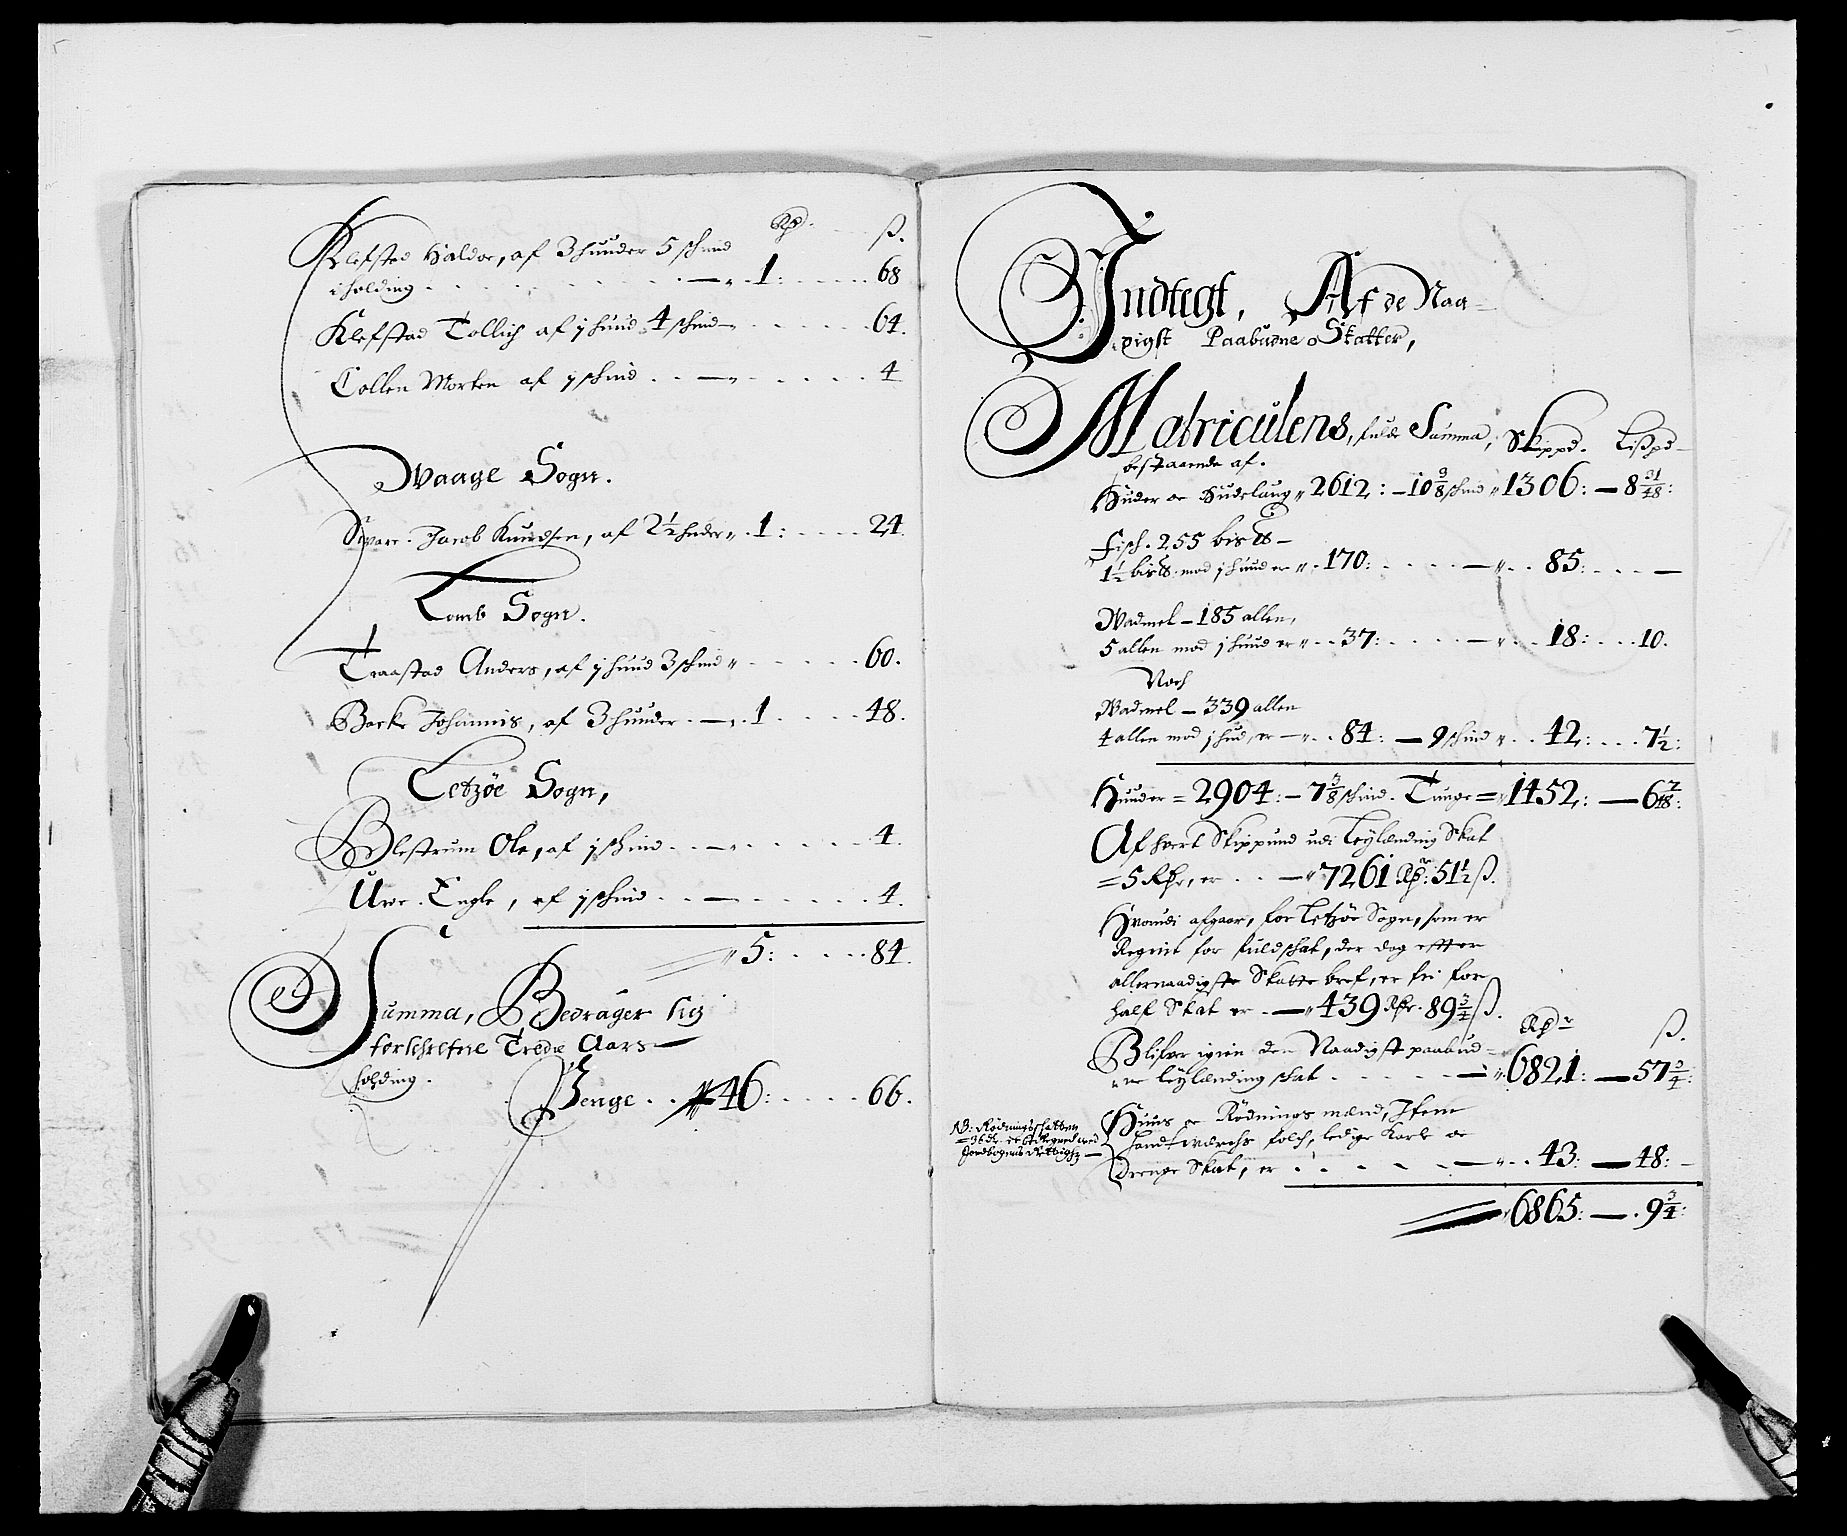 Rdr. ß.
Klefstad Haldor, af 3 huuder 5 schind
i holding . . . . . 1: . . . 68
Klefstad Tollich af j huud 4 schind . . . 64.
Tollen Morten af j schind . . . 4
Waage Sogn.
Svare. Jacob Knudsen, af 2½ huder . 1: . . . 24.
Lomb Sogn.
Traastad Anders, af j huud 3 schind . . . 60.
Bache Johannis, af 3 huuder . 1 . . . 48.
Letzøe Sogn,
Blestrum Ole, af j schind . . . 4.
Uwe. Engle, af j schind . . . 4.
5: . . . 84.
Summa, Bedrager sig
forschrefne Tredie Aars
holding.
Penge . . 46: . . . 66.
Indtegt, Af de Naa-
digst Paabudne Skatter,
Matriculens, fulde Summa, Skippd. Lißpd
bestaaende af.
Huder oc Hudelaug 2612: - 10 3/8 schind 1306: - 8 31/48:
Fisch. 255 bis℔ -
1½ bis℔ mod j huud er . . 170: . . . 85: . . . -
Wadmel - 185 allen,
5 allen mod j huud er . . 37: . . . 18: . . . 10.
Noch
Wadmel - 339 allen
4 allen mod j hud, er - . . 84: - 9 schind . . 42: . . . 7½:
Huuder = 2904: - 7 3/8 schind. Tunge = 1452: - 6 7/48:
Af hvert Skippund udi Leylænding Skat
= 5 Rdr, er . . - 7261 Rdr: 51½ ß.
Hvorudi afgaar, for Letzøe Sogn, som er
Regnit for fuld schat, der dog efter
allernaadigste Skatte bref, er fri for
half Skat er . - 439 Rdr. 89 3/4 ß.
Rdr ß.
Blifver igien den Naadigst paabud-
ne leylænding schat . . . - 6821: - 57 3/4:
Huus oc Rødnings mænd, Item
handtværchs folch, ledige Karle oc
drenge Skat, er . . . . - . . 43: - 48: -
NB: Rødningsschatten
= 36 dr. er beregned med
Jordbogens Rettighz -
6865: - . 9 3/4: